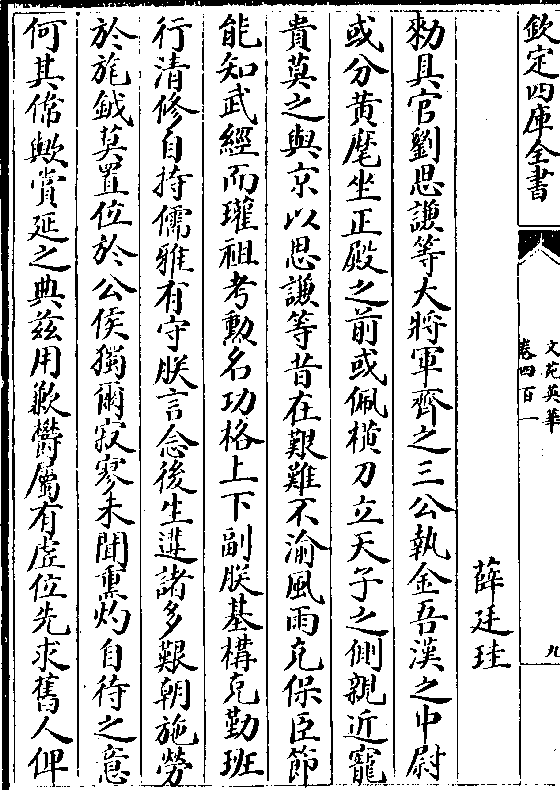 欽定四庫全書
文苑英華
卷四百一
九
薛廷珪
勑具官劉思謙等大將軍齊之三公執金吾漢之中尉
或分黄麾坐正殿之前或佩横刀立天子之側親近寵
貴莫之與京以思謙等昔在艱難不渝風雨克保臣節
能知武經而瓘祖考勳名功格上下副朕基構克勤班
行清修自持儒雅有守朕言念後生遘諸多艱朝施勞
於旄鉞莫置位於公侯獨爾寂寥未聞熏灼自待之意
何其偉歟賞延之典兹用歉欝屬有虚位先求舊人俾